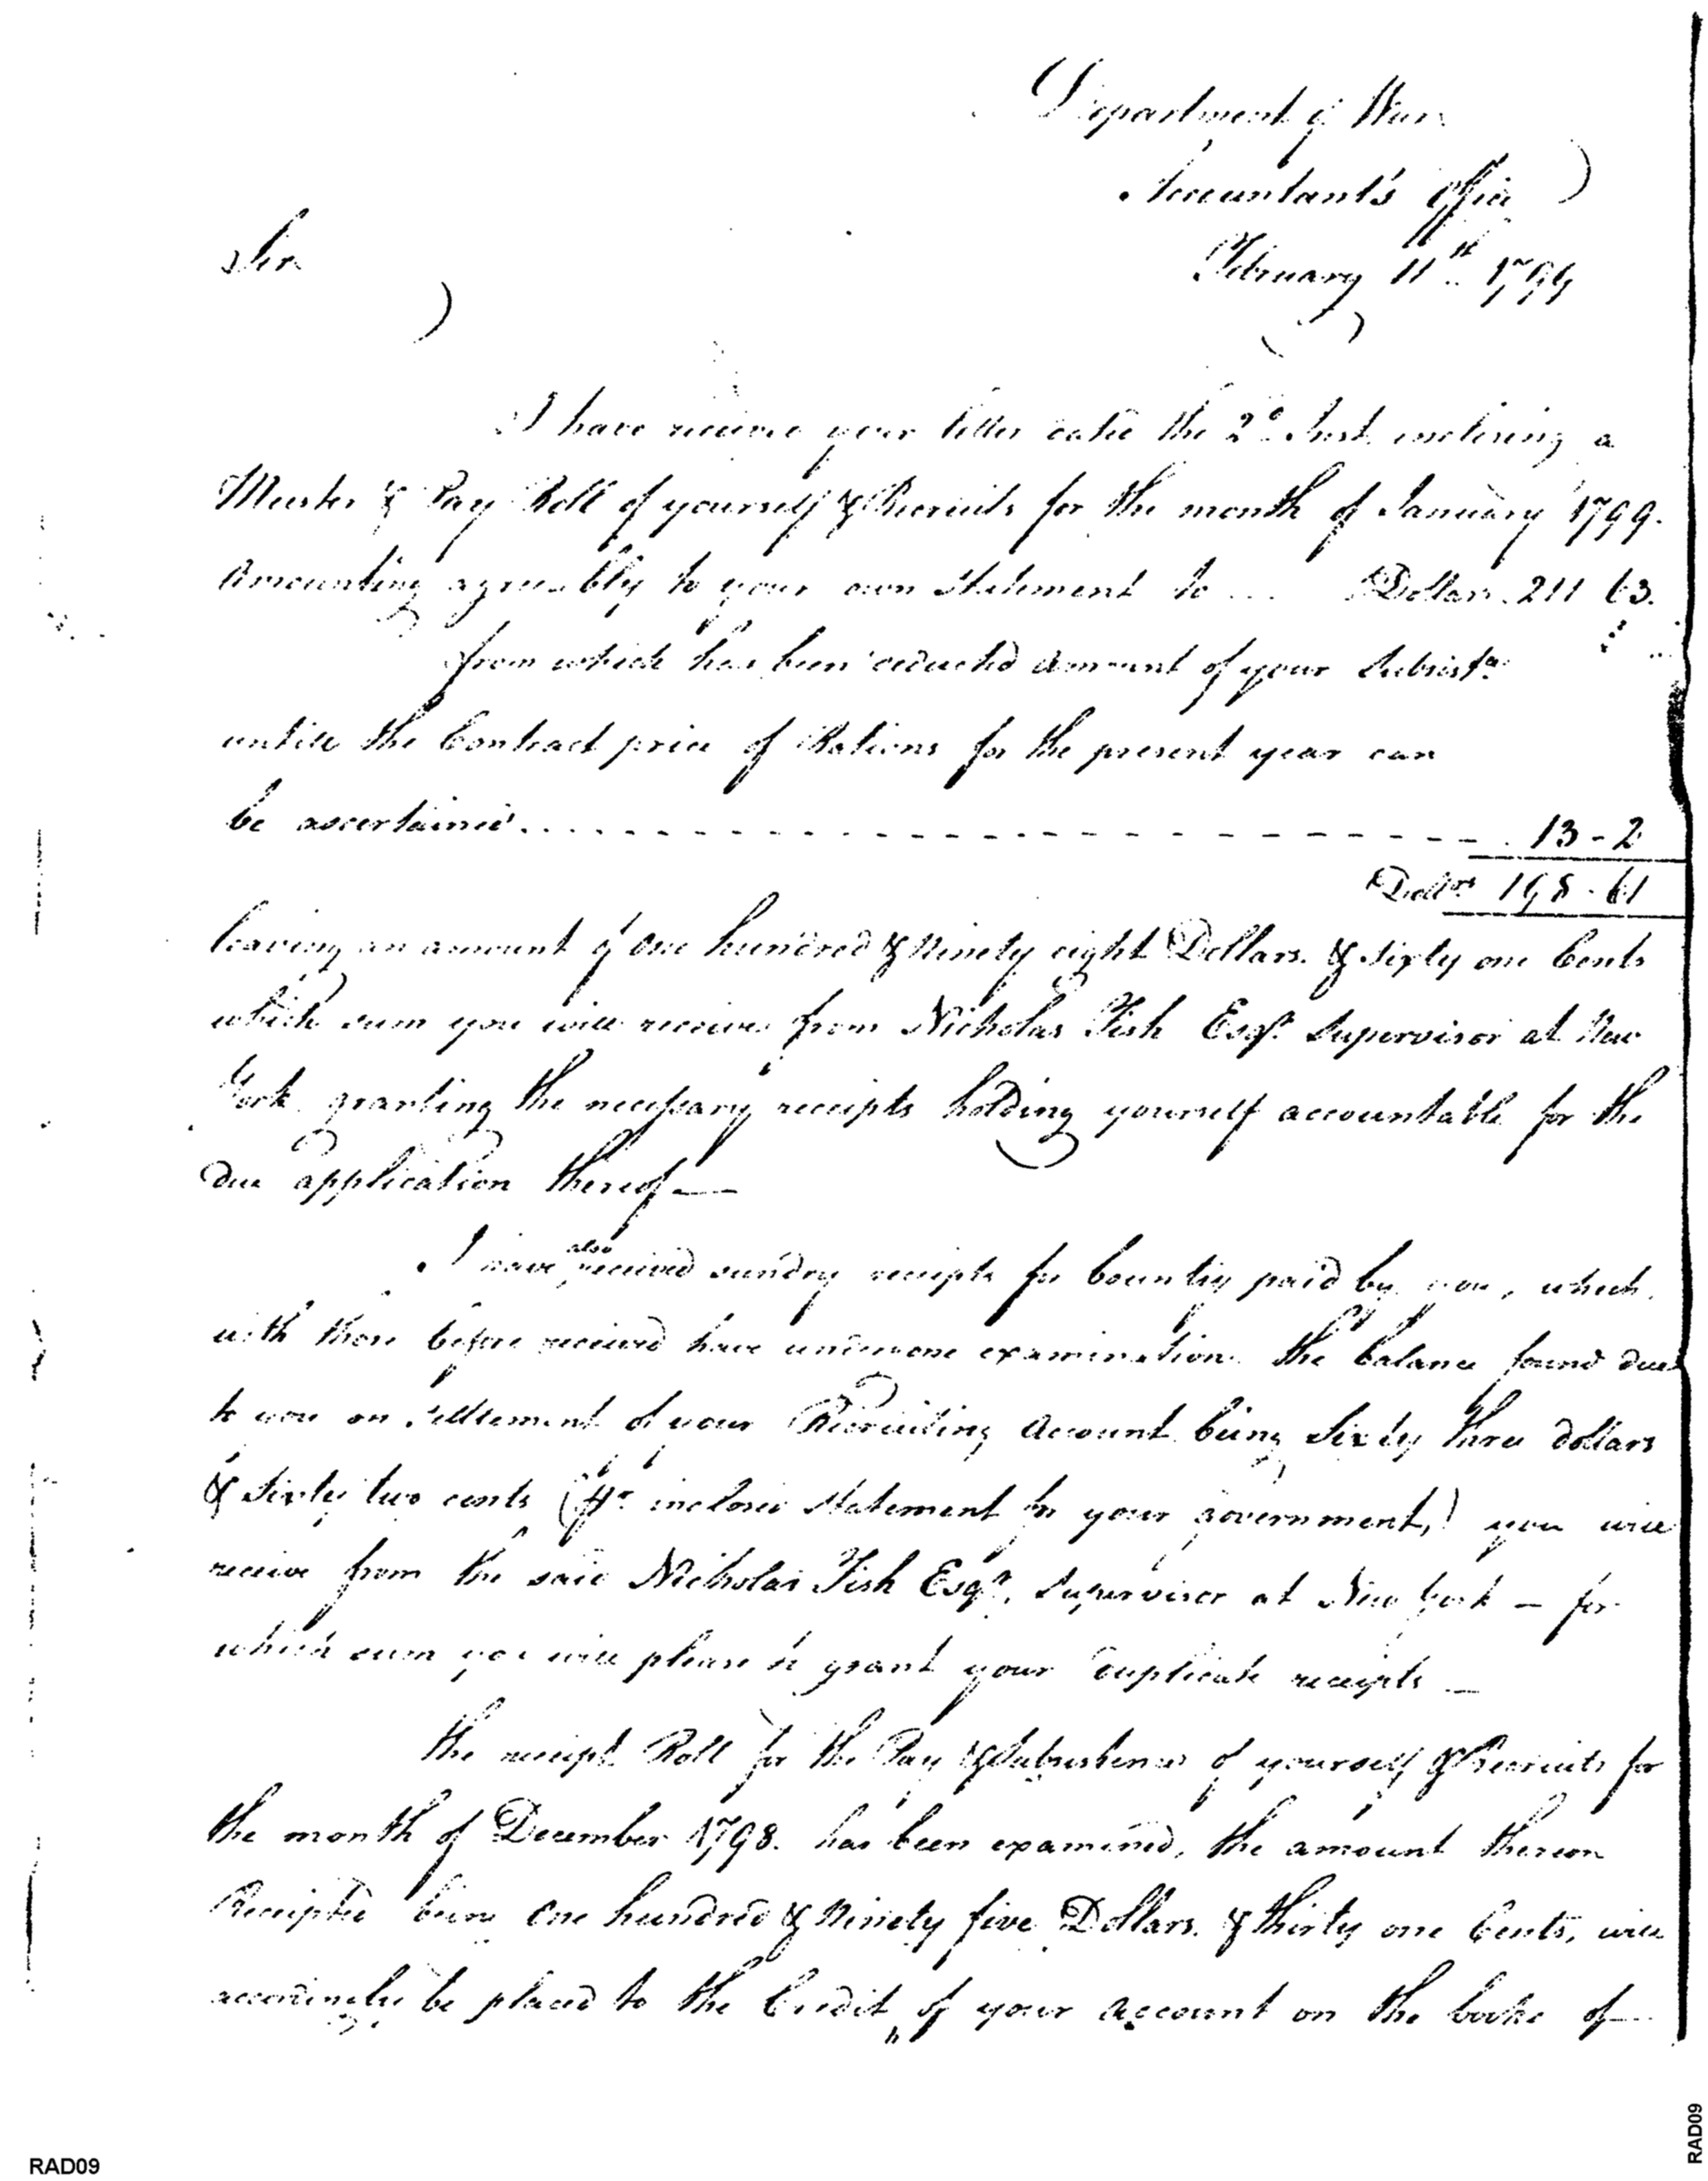 Department of War
Accountant's Office
Sir
February 11th 1799
I have received your letter dated the 2d. Inst. inclosing a
Muster & Pay Roll of yourself & Recruits for the month of January 1799.
Amounting agreeably to your own statement to ... Dollars. 211 63.
from which has been deducted amount of your Subsistce
untill the Contract price of Rations for the present year can
be ascertained. - - - - - - - - - - 13 - 2
Dollrs 198 - 61
leaving an amount of One hundred & Ninety eight Dollars. & Sixty one Cents
which sum you will receive from Nicholas Fish Esqr. Supervisor at New
York granting the necessary receipts holding yourself accountable for the
due application thereof —
also
I have received sundry receipts for bounties paid by you, which,
with those before received have undergone examination. the balance found due
to you on settlement of your Recruiting Account being Sixty three dollars
& Sixty two cents (pr. inclosed statement for your government,) you will
receive from the said Nicholas Fish Esqr. Supervisor at New York — for
which sum you will please to grant your duplicate receipts —
the receipt Roll for the Pay & Subsistence of yourself & Recruits for
the month of December 1798. has been examined, the amount thereon
Receipted being One hundred & Ninety five Dollars. & thirty one Cents, will
accordingly be placed to the Credit of your account on the books of
RAD09
RAD09